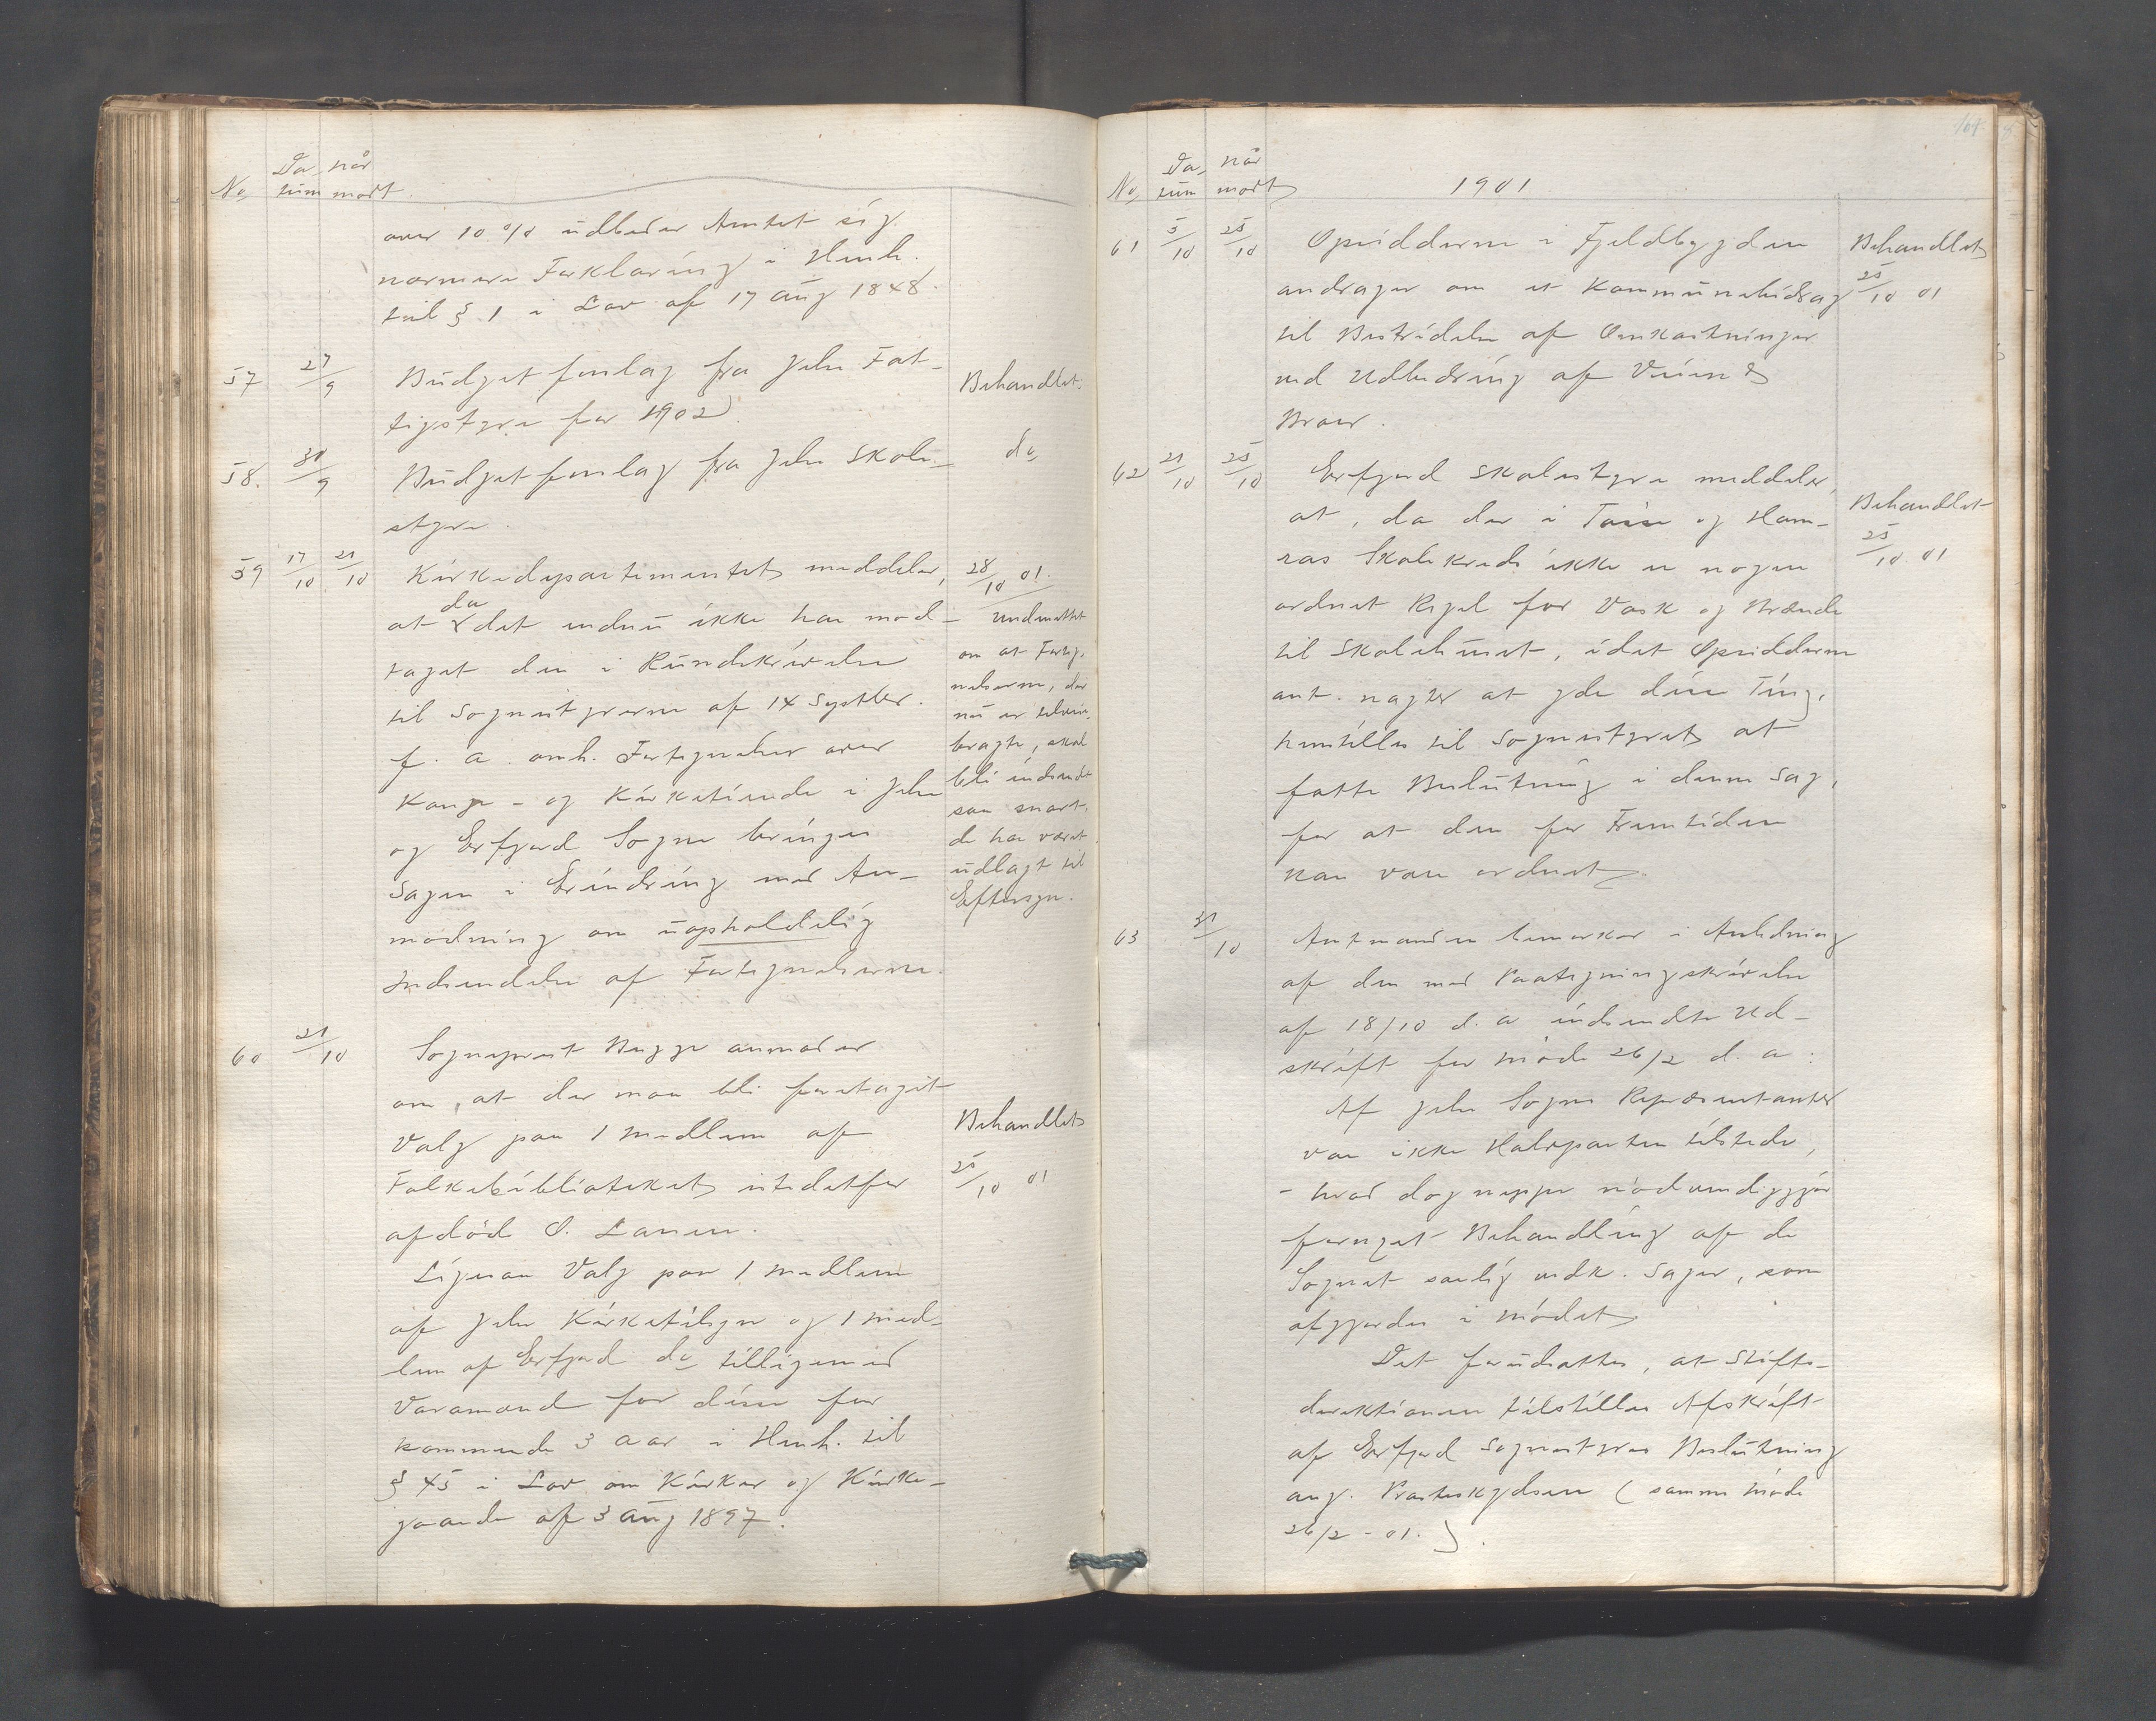 No, Da- når
tum modt.
over 10 % udbeder Amtet sig
nærmere Forklaring i Henh.
til § 1 i Lov af 17 Aug 1848.
57 27/9 Budgetforslag fra Jelse Fat- Behandlet.
tigstyre for 1902
58. 30/9 Budgetforslag fra Jelse Skole- do
styre.
59 17/10 21/10 Kirkedepartementet meddeler, 28/10 01.
at da det endnu ikke har mod- Underrettet
taget den i Rundskrivelse om at Forteg-
til Sognestyrerne af 14 Septber. nelserne, der
f. a. omh. Fortegnelser over nu er tilveie-
Konge- og Kirketiende i Jelse bragte, skal
og Erfjord Sogne bringes bli indsendt
Sagen i Erindring med An- saa snart
modning om uopholdelig de har været
Indsendelse af Fortegnelserne. udlagt til
Eftersyn.
60 21/10 Sogneprest Bugge anmoder
om, at der maa bli foretaget
Valg paa 1 Medlem af Behandlet
Folkebibliotekets istedetfor 25/10 01
afdöde O. Larsen.
Ligesaa Valg paa 1 Medlem
af Jelse Kirketilsyn og 1 Med-
lem af Erfjord do tilligemed
Varamænd for disse for
kommende 3 Aar i Henh. til
§ 45 i Lov om Kirker og Kirke-
gaarde af 3 Aug 1897.
No, Da- når
tum modt 1901
61 5/10 25/10 Opsidderne i Fjeldbygden Behandlet
andrager om et Kommunebidrag 25/10 01
til Bestridelse af Omkostninger
ved Udbedring af Veien &
Broer.
62 21/10 25/10 Erfjord Skolestyre meddeler,
at, da der i og Ham- Behandlet
ras Skolekreds ikke er nogen 25/10 01
ordnet Regel for Vask og Brænde
til Skolehuset, idet Opsidderne
ant. nægter at yde disse Ting,
henstilles til Sognestyret at
fatte Beslutning i denne Sag,
for at den for Fremtiden
kan være ordnet.
63 31/10 Amtmanden bemerker i Anledning
af den med Paategningsskrivelse
af 18/10 d. a indsendte Ud-
skrift for Möde 26/2 d. a:
Af Jelse Sogns Repræsentanter
var ikke Halvparten tilstede,
- hvad dog neppe nödvendiggjør
fornyet Behandling af de
Sognet særlig vedk. Sager, som
afgjordes i Mödet.
Det forudsættes, at Stifts-
direktionen tilstilles Afskrift
af Erfjord Sognestyres Beslutning
ang. Presteskydsen (samme Möde
26/2 - 01.)